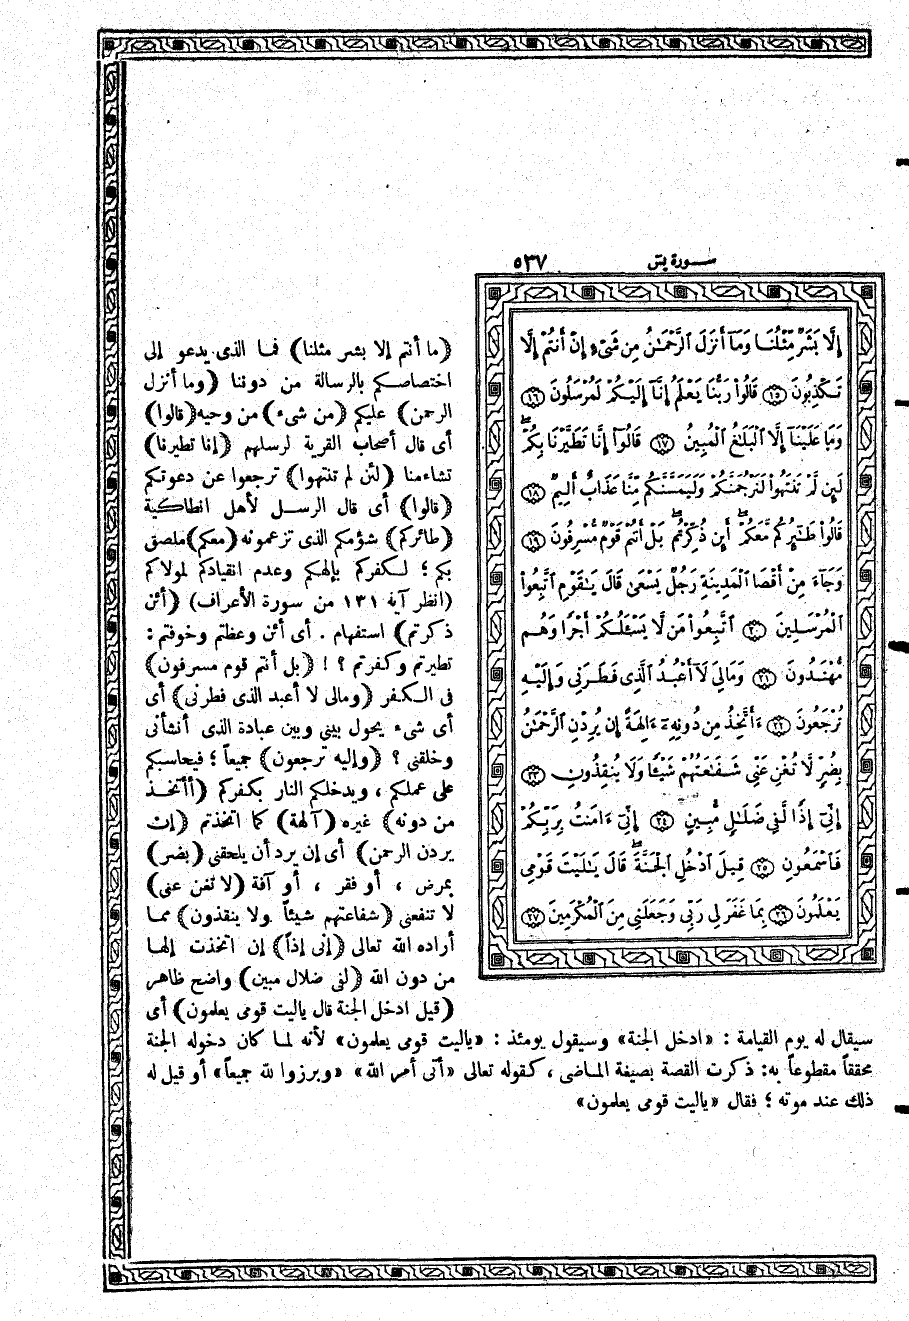 سورة يس ٥٣٧
إِلَّا بَشَرٌ مِّثْلُنَا وَمَآ أَنزَلَ ٱلرَّحْمَٰنُ مِن شَىْءٍ إِنْ أَنتُمْ إِلَّا
تَكْذِبُونَ ١٥ قَالُوا۟ رَبُّنَا يَعْلَمُ إِنَّآ إِلَيْكُمْ لَمُرْسَلُونَ ١٦
وَمَا عَلَيْنَآ إِلَّا ٱلْبَلَٰغُ ٱلْمُبِينُ ١٧ قَالُوٓا۟ إِنَّا تَطَيَّرْنَا بِكُمْ ۖ
لَئِن لَّمْ تَنتَهُوا۟ لَنَرْجُمَنَّكُمْ وَلَيَمَسَّنَّكُم مِّنَّا عَذَابٌ أَلِيمٌ ١٨
قَالُوا۟ طَٰٓئِرُكُم مَّعَكُمْ ۚ أَئِن ذُكِّرْتُم ۚ بَلْ أَنتُمْ قَوْمٌ مُّسْرِفُونَ ١٩
وَجَآءَ مِنْ أَقْصَا ٱلْمَدِينَةِ رَجُلٌ يَسْعَىٰ قَالَ يَٰقَوْمِ ٱتَّبِعُوا۟
ٱلْمُرْسَلِينَ ٢٠ ٱتَّبِعُوا۟ مَن لَّا يَسْـَٔلُكُمْ أَجْرًا وَهُم
مُّهْتَدُونَ ٢١ وَمَالِىَ لَآ أَعْبُدُ ٱلَّذِى فَطَرَنِى وَإِلَيْهِ
تُرْجَعُونَ ٢٢ ءَأَتَّخِذُ مِن دُونِهِۦٓ ءَالِهَةً إِن يُرِدْنِ ٱلرَّحْمَٰنُ
بِضُرٍّ لَّا تُغْنِ عَنِّى شَفَٰعَتُهُمْ شَيْـًٔا وَلَا يُنقِذُونِ ٢٣
إِنِّىٓ إِذًا لَّفِى ضَلَٰلٍ مُّبِينٍ ٢٤ إِنِّىٓ ءَامَنتُ بِرَبِّكُمْ
فَٱسْمَعُونِ ٢٥ قِيلَ ٱدْخُلِ ٱلْجَنَّةَ ۖ قَالَ يَٰلَيْتَ قَوْمِى
يَعْلَمُونَ ٢٦ بِمَا غَفَرَ لِى رَبِّى وَجَعَلَنِى مِنَ ٱلْمُكْرَمِينَ ٢٧
(ما أنتم إلا بشر مثلنا) فما الذى يدعو إلى
اختصاصكم بالرسالة من دوننا (وما أنزل
الرحمن) عليكم (من شىء) من وحيه (قالوا)
أى قال أصحاب القرية لرسلهم (إنا تطيرنا)
تشاءمنا (لئن لم تنتهوا) ترجعوا عن دعوتكم
(قالوا) أى قال الرسل لأهل انطاكية
(طائركم) شؤمكم الذى تزعمونه (معكم) ملصق
بكم ؛ لكفركم بإلهكم وعدم انقيادكم لمولاكم
(انظر آية ١٣١ من سورة الأعراف) (أئن
ذكرتم) استفهام . أى أئن وعظتم وخوفتم :
تطيرتم وكفرتم ؟ ! (بل أنتم قوم مسرفون)
فى الكفر (ومالى لا أعبد الذى فطرنى) أى
أى شىء يحول بينى وبين عبادة الذى أنشأنى
وخلقنى ؟ (وإليه ترجعون) جميعاً ؛ فيحاسبكم
على عملكم ، ويدخلكم النار بكفركم (أأتخذ
من دونه) غيره (آلهة) كما اتخذتم (إن
يردن الرحمن) أى إن يرد أن يلحقنى (بضر)
بمرض ، أو فقر ، أو آفة (لا تغن عنى)
لا تنفعنى (شفاعتهم شيئاً ولا ينقذون) مما
أراده الله تعالى (إنى إذاً) إن اتخذت إلها
من دون الله (لفى ضلال مبين) واضح ظاهر
(قيل ادخل الجنة قال ياليت قومى يعلمون) أى
سيقال له يوم القيامة : «ادخل الجنة» وسيقول يومئذ : «ياليت قومى يعلمون» لأنه لما كان دخوله الجنة
محققاً مقطوعاً به : ذكرت القصة بصيغة الماضى ، كقوله تعالى «أتى أمر الله» «وبرزوا لله جميعاً» أو قيل له
ذلك عند موته ؛ فقال «ياليت قومى يعلمون»